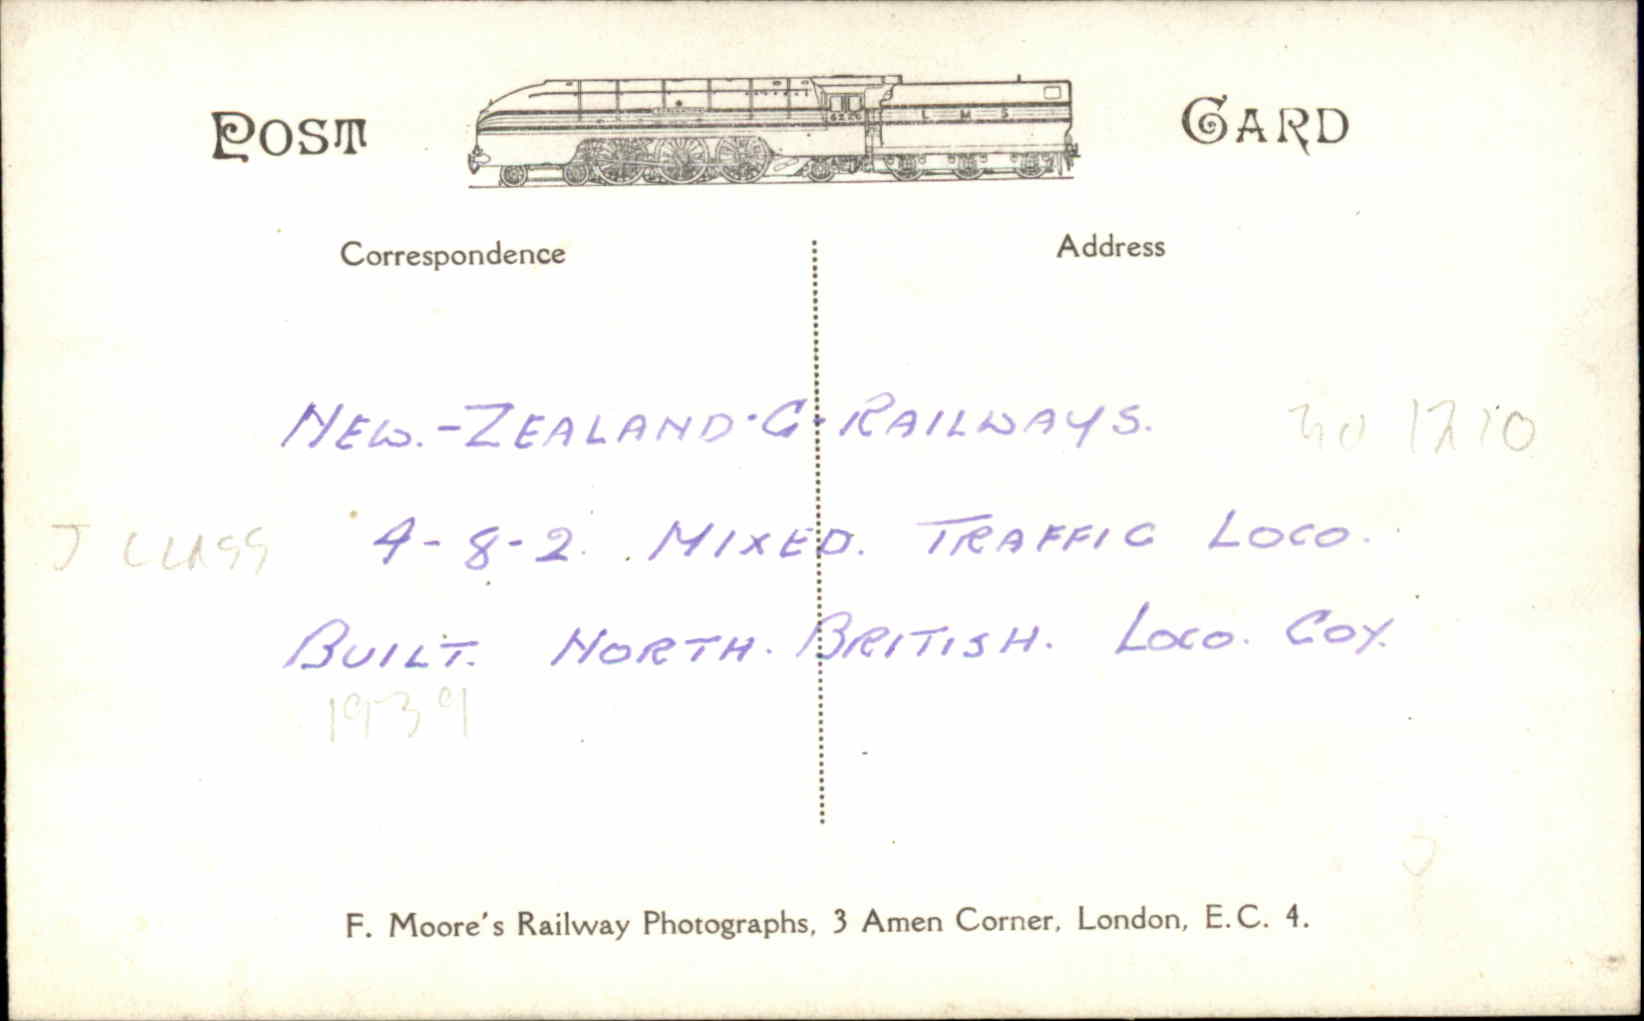 POST CARD
L M S
Correspondence
Address
NEW.-ZEALAND·G·RAILWAYS.
J CLASS 4-8-2. MIXED. TRAFFIC LOCO.
BUILT. NORTH. BRITISH. LOCO. COY.
1939
F. Moore's Railway Photographs, 3 Amen Corner, London, E.C. 4.